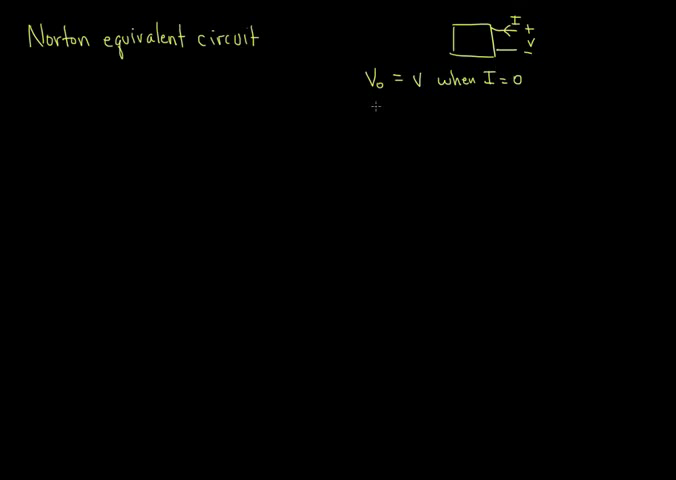 Norton equivalent circuit
I
+
V
−
V₀ = V when I = 0